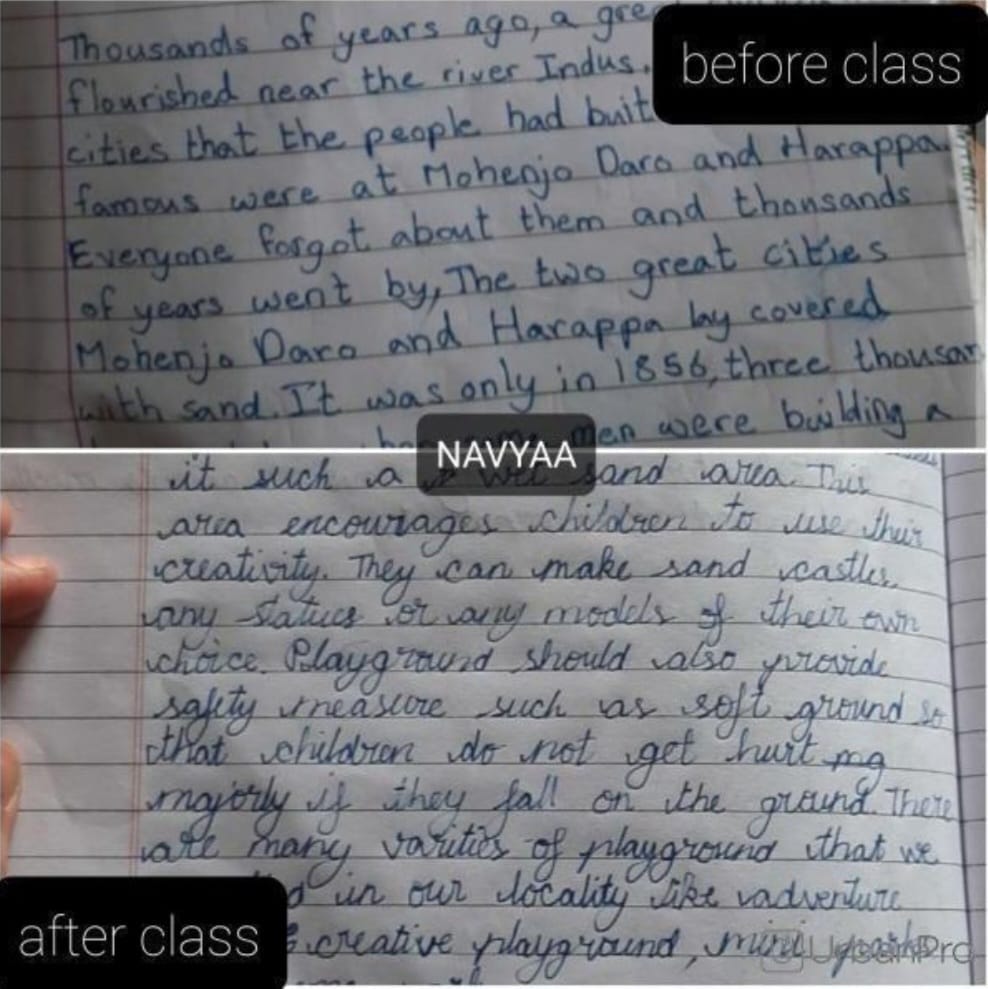 Thousands of years ago, a
before class
flourished near the river Indus.
cities that the people had buit
famous were at Mohenjo Daro and Harappa.
Everyone forgot about them and thousands
of years went by, The two great cities
Mohenjo Daro and Harappa lay covered
with sand. It was only in 1856, three
men were building a
NAVYAA
it such a sand area. This
area encourages children to use their
creativity. They can make sand castles,
any statues or any models of their own
choice. Playground should also provide
safety measure such as soft ground so
that children do not get hurt mg
majorly if they fall on the ground. There
are many varities of playground that we
in our locality like adventure
creative playground, mini
after class
UrbanPro